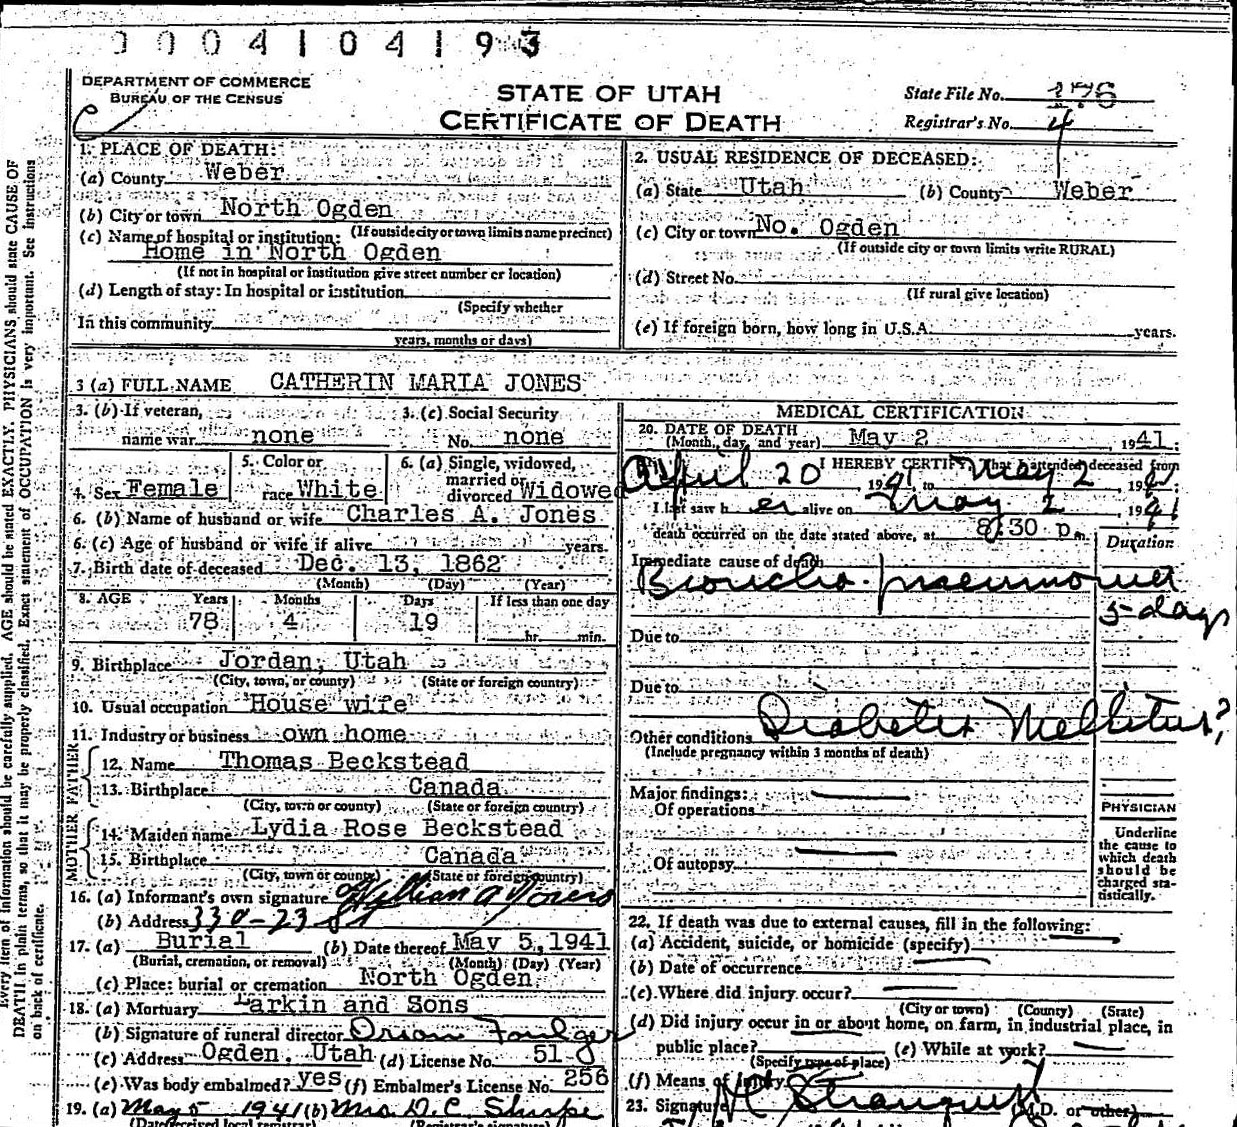 0004104193
DEPARTMENT OF COMMERCE
BUREAU OF THE CENSUS
STATE OF UTAH
CERTIFICATE OF DEATH
State File No.
Registrar's No. 4
1. PLACE OF DEATH:
(a) County Weber
(b) City or town North Ogden
(If outside city or town limits name precinct)
(c) Name of hospital or institution:
Home in North Ogden
(If not in hospital or institution give street number or location)
(d) Length of stay: In hospital or institution
(Specify whether
In this community
years, months or days)
2. USUAL RESIDENCE OF DECEASED:
(a) State Utah (b) County Weber
(c) City or town No. Ogden
(If outside city or town limits write RURAL)
(d) Street No.
(If rural give location)
(e) If foreign born, how long in U.S.A. years.
3 (a) FULL NAME CATHERIN MARIA JONES
3. (b) If veteran, name war none
3. (c) Social Security No. none
4. Sex Female
5. Color or race White
6. (a) Single, widowed, married or divorced Widowed
6. (b) Name of husband or wife Charles A. Jones
6. (c) Age of husband or wife if alive years.
7. Birth date of deceased Dec. 13, 1862
(Month) (Day) (Year)
8. AGE Years Months Days If less than one day
78 4 19 hr. min.
9. Birthplace Jordan, Utah
(City, town, or county) (State or foreign country)
10. Usual occupation House wife
11. Industry or business own home
FATHER
12. Name Thomas Beckstead
13. Birthplace Canada
(City, town or county) (State or foreign country)
MOTHER
14. Maiden name Lydia Rose Beckstead
15. Birthplace Canada
(City, town or county) (State or foreign country)
16. (a) Informant's own signature William A Jones
(b) Address 330-23 St
17. (a) Burial (b) Date thereof May 5, 1941
(Burial, cremation, or removal) (Month) (Day) (Year)
(c) Place: burial or cremation North Ogden
18. (a) Mortuary Larkin and Sons
(b) Signature of funeral director Orian Foulger
(c) Address Ogden, Utah (d) License No. 51
(e) Was body embalmed? yes (f) Embalmer's License No. 256
19. (a) May 5 1941 (b) Mrs. D. C. Sharpe
(Date received local registrar) (Registrar's signature)
MEDICAL CERTIFICATION
20. DATE OF DEATH
(Month, day, and year) May 2, 1941.
I HEREBY CERTIFY That I attended deceased from
April 20, 1941 to May 2, 1941
I last saw her alive on May 2, 1941
death occurred on the date stated above, at 8:30 p m.
Duration
Immediate cause of death
Broncho-pneumonia
5 days
Due to
Due to
Other conditions Diabetes Mellitus?
(Include pregnancy within 3 months of death)
Major findings:
Of operations
Of autopsy
PHYSICIAN
Underline
the cause to
which death
should be
charged sta-
tistically.
22. If death was due to external causes, fill in the following:
(a) Accident, suicide, or homicide (specify)
(b) Date of occurrence
(c) Where did injury occur?
(City or town) (County) (State)
(d) Did injury occur in or about home, on farm, in industrial place, in
public place? (e) While at work?
(Specify type of place)
(f) Means of injury
23. Signature (M.D. or other)
Every item of information should be carefully supplied. AGE should be stated EXACTLY. PHYSICIANS should state CAUSE OF
DEATH in plain terms, so that it may be properly classified. Exact statement of OCCUPATION is very important. See instructions
on back of certificate.